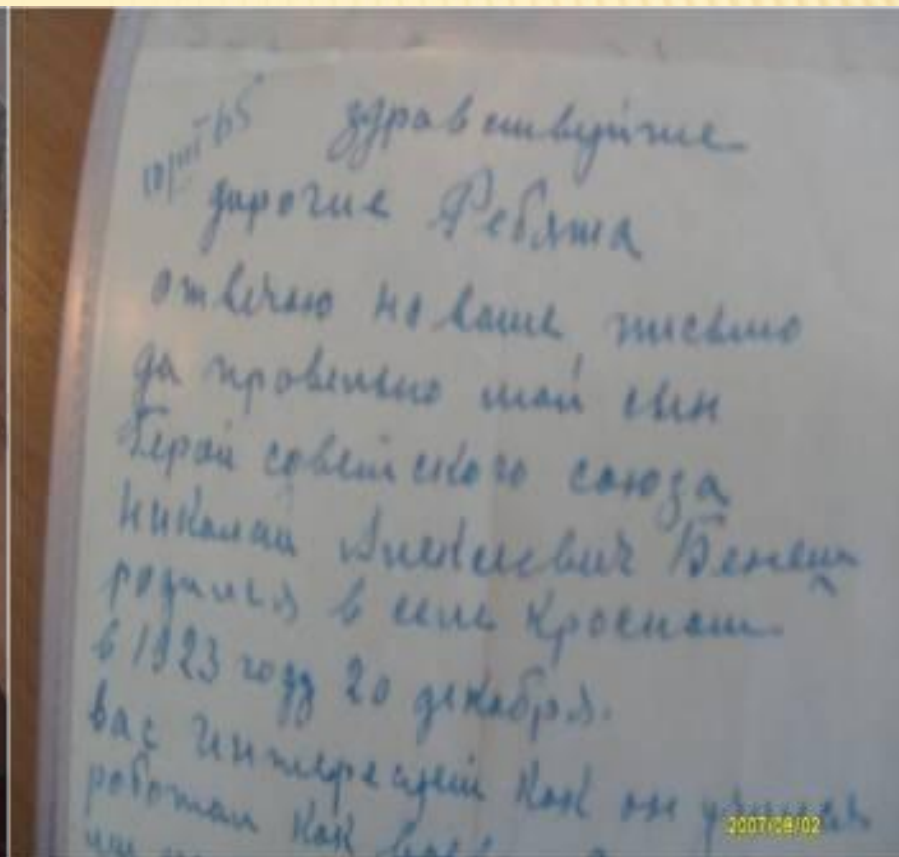 здравствуйте
дорогие Ребята
отвечаю на ваше письмо
да провельно мой сын
Герой советского союза
Николай Алексеевич Бенеш
родился в селе Кросном
в 1923 году 20 декабря.
вас интересует как он учился
работал как
2007/08/02